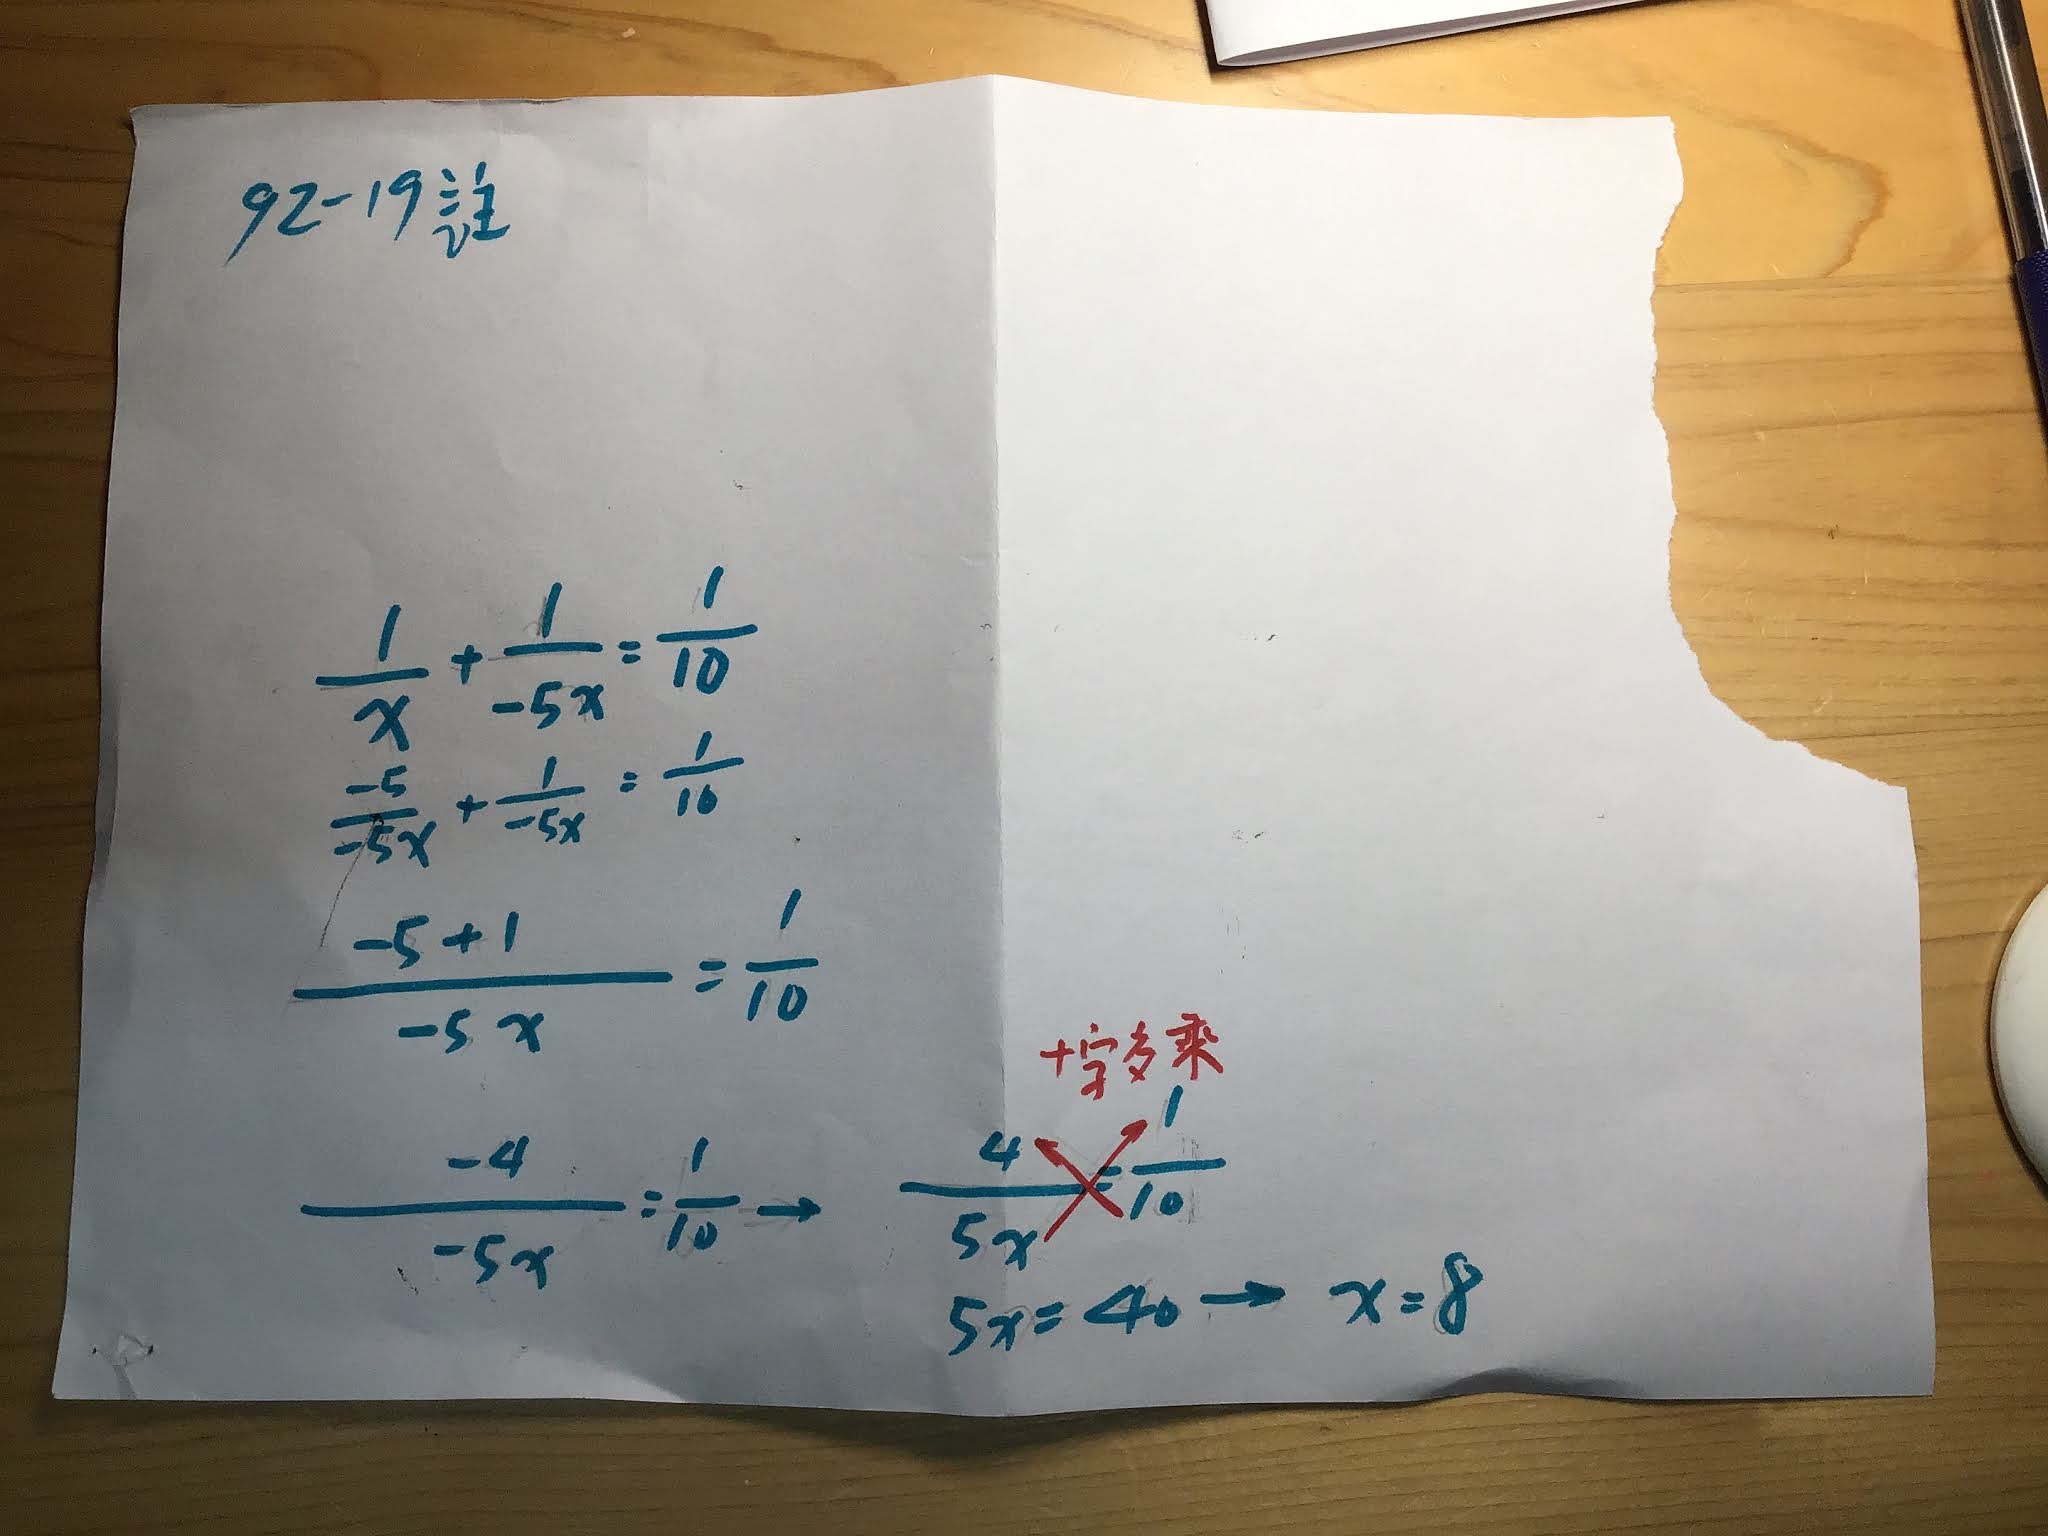 92-19註
1/x + 1/-5x = 1/10
-5/-5x + 1/-5x = 1/10
-5+1/-5x = 1/10
十字多乘
-4/-5x = 1/10 → 4/5x = 1/10
5x = 40 → x = 8